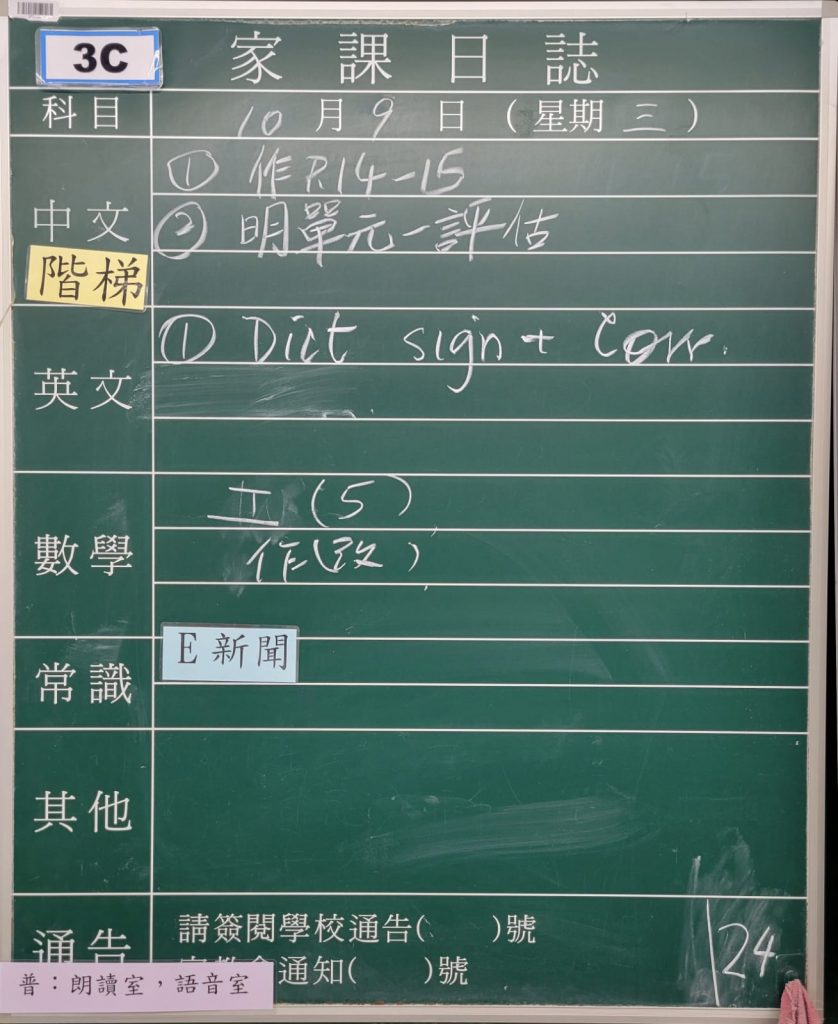 3C
家課日誌
科目 10月9日(星期三)
中文 ① 作P.14-15
② 明單元一評估
階梯
英文 ① Dict sign + Corr.
數學 II (5)
作(改)
常識 E新聞
其他
通告 請簽閱學校通告( )號
通知( )號
普：朗讀室，語音室
24